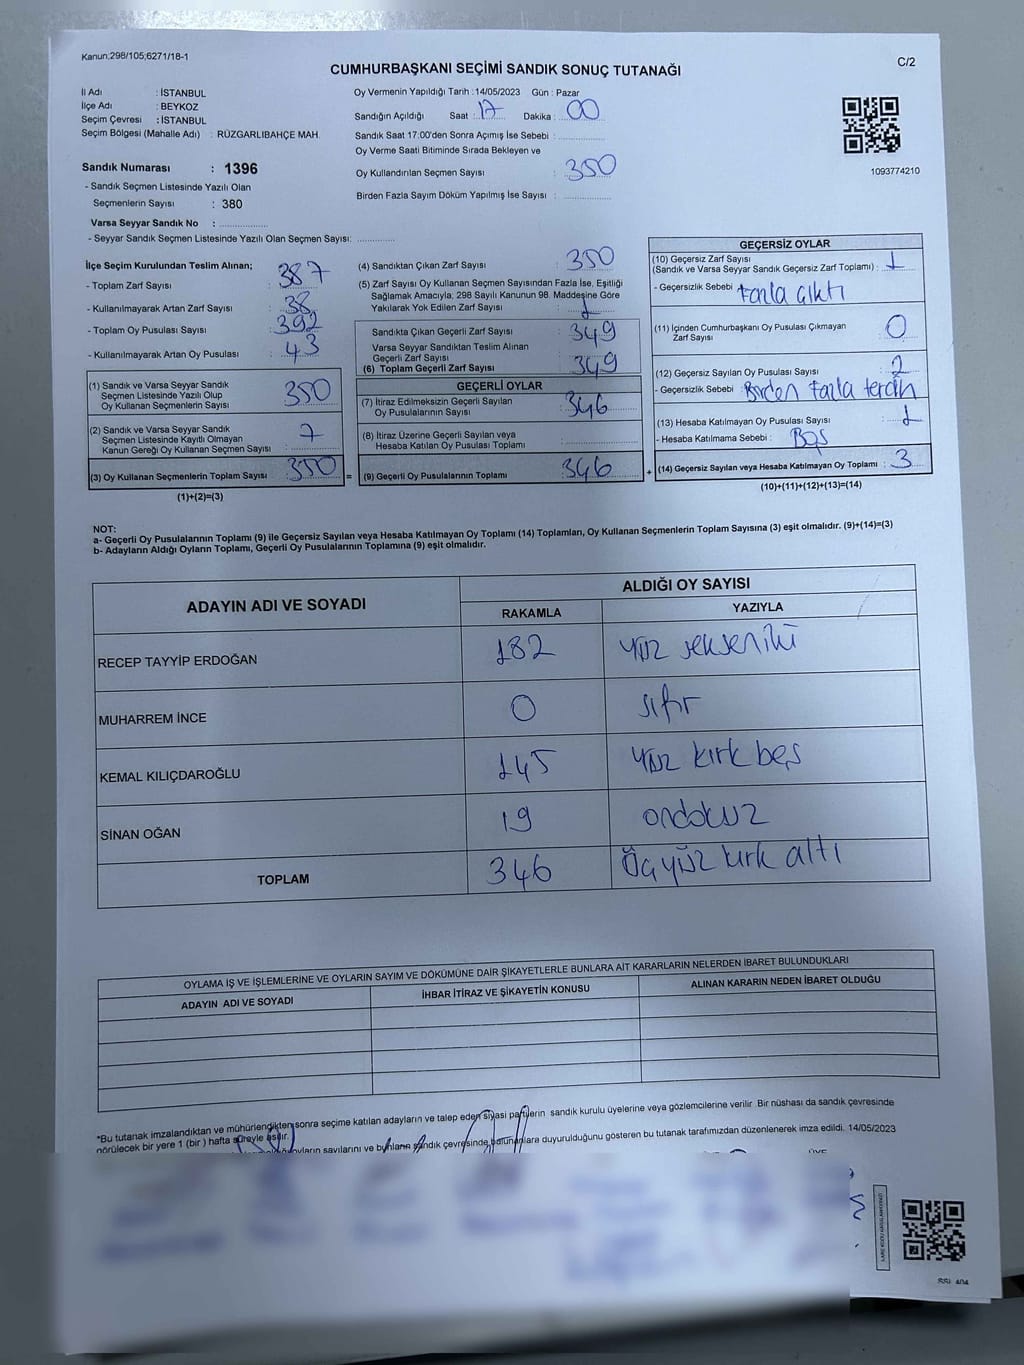 Kanun;298/105;6271/18-1
C/2
CUMHURBAŞKANI SEÇİMİ SANDIK SONUÇ TUTANAĞI
İl Adı : İSTANBUL
İlçe Adı : BEYKOZ
Seçim Çevresi : İSTANBUL
Seçim Bölgesi (Mahalle Adı) : RÜZGARLIBAHÇE MAH.
Sandık Numarası : 1396
- Sandık Seçmen Listesinde Yazılı Olan
Seçmenlerin Sayısı : 380
Varsa Seyyar Sandık No : ................
- Seyyar Sandık Seçmen Listesinde Yazılı Olan Seçmen Sayısı: ............
Oy Vermenin Yapıldığı Tarih : 14/05/2023 Gün : Pazar
Sandığın Açıldığı Saat : 17 Dakika : 00
Sandık Saat 17:00'den Sonra Açımış İse Sebebi : ................
Oy Verme Saati Bitiminde Sırada Bekleyen ve
Oy Kullandırılan Seçmen Sayısı : 350
Birden Fazla Sayım Döküm Yapılmış İse Sayısı : ................
1093774210
İlçe Seçim Kurulundan Teslim Alınan;
- Toplam Zarf Sayısı : 387
- Kullanılmayarak Artan Zarf Sayısı : 38
- Toplam Oy Pusulası Sayısı : 392
- Kullanılmayarak Artan Oy Pusulası : 43
(1) Sandık ve Varsa Seyyar Sandık
Seçmen Listesinde Yazılı Olup
Oy Kullanan Seçmenlerin Sayısı 350
(2) Sandık ve Varsa Seyyar Sandık
Seçmen Listesinde Kayıtlı Olmayan
Kanun Gereği Oy Kullanan Seçmen Sayısı 7
(3) Oy Kullanan Seçmenlerin Toplam Sayısı 350 =
(1)+(2)=(3)
(4) Sandıktan Çıkan Zarf Sayısı : 350
(5) Zarf Sayısı Oy Kullanan Seçmen Sayısından Fazla İse, Eşitliği
Sağlamak Amacıyla; 298 Sayılı Kanunun 98. Maddesine Göre
Yakılarak Yok Edilen Zarf Sayısı : 1
Sandıkta Çıkan Geçerli Zarf Sayısı : 349
Varsa Seyyar Sandıktan Teslim Alınan
Geçerli Zarf Sayısı
(6) Toplam Geçerli Zarf Sayısı : 349
GEÇERLİ OYLAR
(7) İtiraz Edilmeksizin Geçerli Sayılan
Oy Pusulalarının Sayısı : 346
(8) İtiraz Üzerine Geçerli Sayılan veya
Hesaba Katılan Oy Pusulası Toplamı :
(9) Geçerli Oy Pusulalarının Toplamı 346 +
GEÇERSİZ OYLAR
(10) Geçersiz Zarf Sayısı
(Sandık ve Varsa Seyyar Sandık Geçersiz Zarf Toplamı) : 1
- Geçersizlik Sebebi : fazla çıktı
(11) İçinden Cumhurbaşkanı Oy Pusulası Çıkmayan
Zarf Sayısı : 0
(12) Geçersiz Sayılan Oy Pusulası Sayısı : 2
- Geçersizlik Sebebi : Birden fazla tercih
(13) Hesaba Katılmayan Oy Pusulası Sayısı : 1
- Hesaba Katılmama Sebebi : Boş
(14) Geçersiz Sayılan veya Hesaba Katılmayan Oy Toplamı : 3
(10)+(11)+(12)+(13)=(14)
NOT:
a- Geçerli Oy Pusulalarının Toplamı (9) ile Geçersiz Sayılan veya Hesaba Katılmayan Oy Toplamı (14) Toplamları, Oy Kullanan Seçmenlerin Toplam Sayısına (3) eşit olmalıdır. (9)+(14)=(3)
b- Adayların Aldığı Oyların Toplamı, Geçerli Oy Pusulalarının Toplamına (9) eşit olmalıdır.
ADAYIN ADI VE SOYADI
ALDIĞI OY SAYISI
RAKAMLA YAZIYLA
RECEP TAYYİP ERDOĞAN 182 yüz seksen iki
MUHARREM İNCE 0 sıfır
KEMAL KILIÇDAROĞLU 145 yüz kırk beş
SİNAN OĞAN 19 ondokuz
TOPLAM 346 Üçyüz kırk altı
OYLAMA İŞ VE İŞLEMLERİNE VE OYLARIN SAYIM VE DÖKÜMÜNE DAİR ŞİKAYETLERLE BUNLARA AİT KARARLARIN NELERDEN İBARET BULUNDUKLARI
ADAYIN ADI VE SOYADI İHBAR İTİRAZ VE ŞİKAYETİN KONUSU ALINAN KARARIN NEDEN İBARET OLDUĞU
*Bu tutanak imzalandıktan ve mühürlendikten sonra seçime katılan adayların ve talep eden siyasi partilerin sandık kurulu üyelerine veya gözlemcilerine verilir. Bir nüshası da sandık çevresinde
görülecek bir yere 1 (bir) hafta süreyle asılır.
oyların sayılarını ve bunların sandık çevresinde bulunanlara duyurulduğunu gösteren bu tutanak tarafımızdan düzenlenerek imza edildi. 14/05/2023
ÜYE